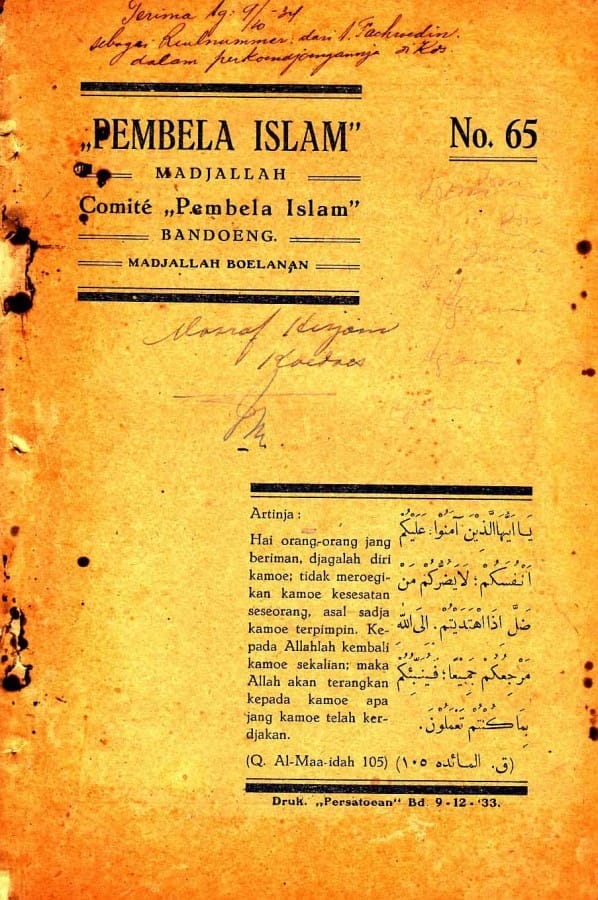 Terima tg. 9/10-34
sebagai Ruilnummer dari t. Fachroedin
dalam perkoendjoengannja di Kds.
„PEMBELA ISLAM”
No. 65
MADJALLAH
Comité „Pembela Islam”
BANDOENG.
MADJALLAH BOELANAN
Koedoes
Artinja :
Hai orang-orang jang
beriman, djagalah diri
kamoe; tidak meroegi-
kan kamoe kesesatan
seseorang, asal sadja
kamoe terpimpin. Ke-
pada Allahlah kembali
kamoe sekalian; maka
Allah akan terangkan
kepada kamoe apa
jang kamoe telah ker-
djakan.
(Q. Al-Maa-idah 105)
يَا اَيُّهَاالَّذِيْنَ آمَنُوْا: عَلَيْكُمْ
اَنْفُسَكُمْ؛ لَايَضُرُّكُمْ مَنْ
ضَلَّ اِذَااهْتَدَيْتُمْ. اِلَى اللهِ
مَرْجِعُكُمْ جَمِيْعًا؛ فَيُنَبِّئُكُمْ
بِمَا كُنْتُمْ تَعْمَلُوْنَ.
(ق. المائده ١٠٥)
Druk. „Persatoean” Bd. 9-12-'33.